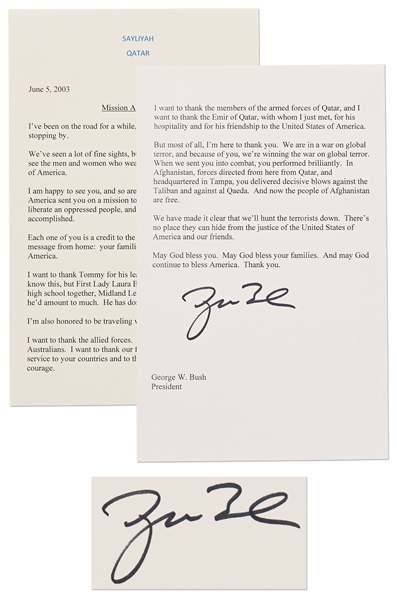 SAYLIYAH
QATAR
June 5, 2003
Mission A
I've been on the road for a while,
stopping by.
We've seen a lot of fine sights,
see the men and women who
of America.
I am happy to see you, and so are
America sent you on a mission to
liberate an oppressed people, and
accomplished.
Each one of you is a credit to the
message from home: your
America.
I want to thank Tommy for his
know this, but First Lady Laura
high school together, Midland
he'd amount to much. He has
I'm also honored to be traveling
I want to thank the allied forces.
Australians. I want to thank our
service to your countries and to
courage.
I want to thank the members of the armed forces of Qatar, and I
want to thank the Emir of Qatar, with whom I just met, for his
hospitality and for his friendship to the United States of America.
But most of all, I'm here to thank you. We are in a war on global
terror, and because of you, we're winning the war on global terror.
When we sent you into combat, you performed brilliantly. In
Afghanistan, forces directed from here from Qatar, and
headquartered in Tampa, you delivered decisive blows against the
Taliban and against al Qaeda. And now the people of Afghanistan
are free.
We have made it clear that we'll hunt the terrorists down. There's
no place they can hide from the justice of the United States of
America and our friends.
May God bless you. May God bless your families. And may God
continue to bless America. Thank you.
George W. Bush
President